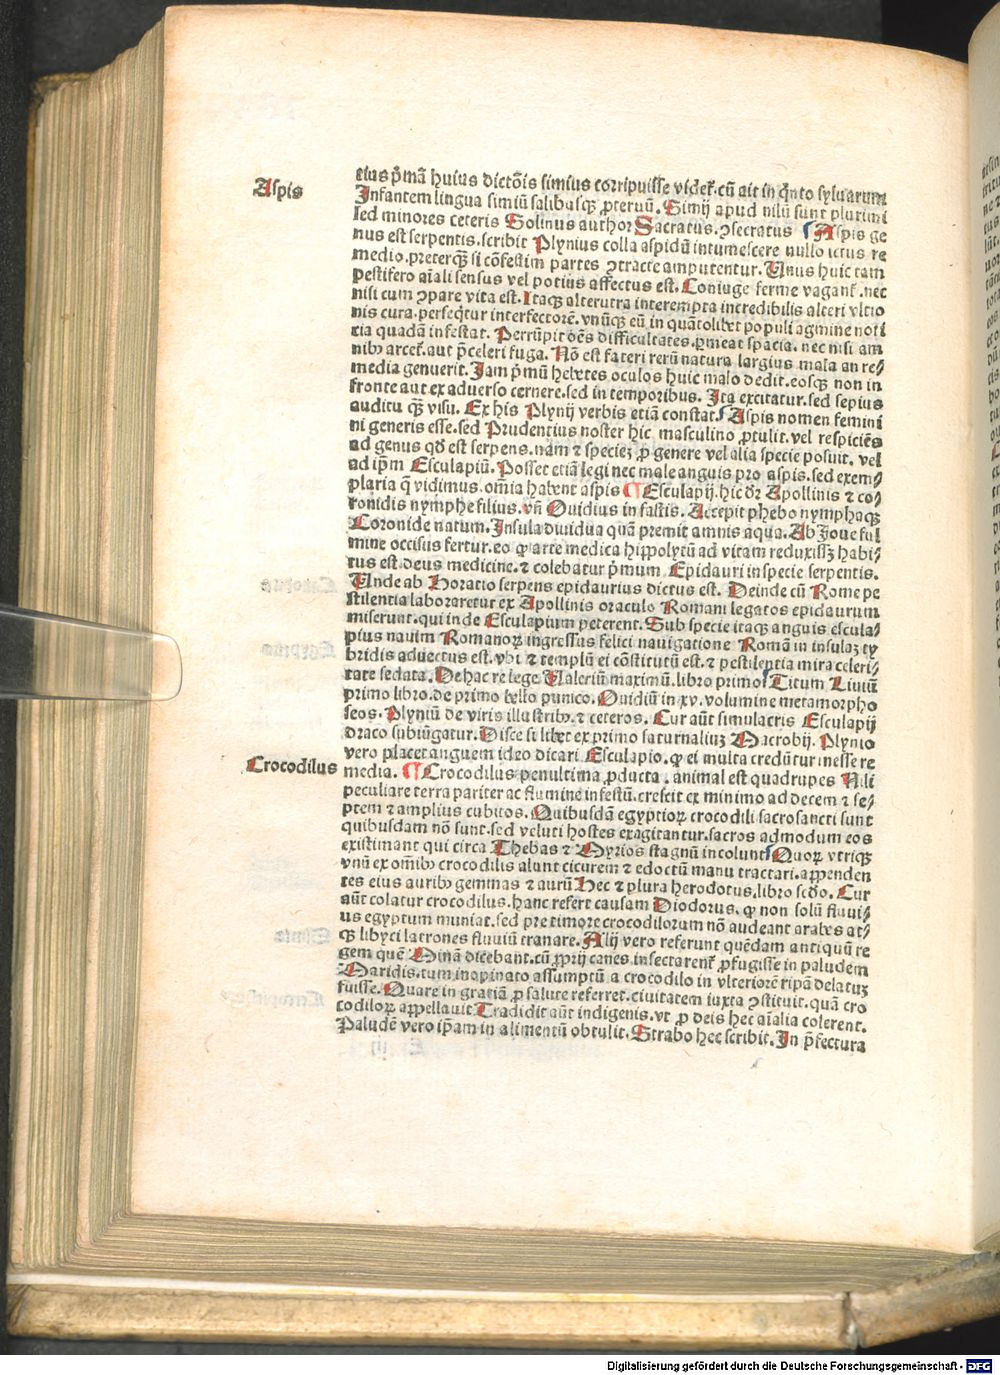 Aspis
tius p̄mā huius dictōis simius corripuisse videt̄. cū ait in q̄nto syluarum
Infantem lingua simiū salibusq̨ p̱teruū. Simij apud nilū sunt plurimi
sed minores ceteris Solinus author Sacratus. ꝯsecratus Aspis ge
nus est serpentis. scribit Plynius colla aspidū intumescere nullo ictus re
medio. preterq̄ꝫ si cōfestim partes ꝯtracte amputentur. Unus huic tam
pestifero aīali sensus vel potius affectus est. Coniuge ferme vagant̄. nec
nisi cum ꝯpare vita est. Itaq̨ alterutra interempta incredibilis alteri vltio
nis cura. perseq̄tur interfectorē. vnūq̨ eū in quātolibet populi agmine noti
cia quadā infestat. Perrūpit oēs difficultates. p̱meat spacia. nec nisi am
nibꝰ arcet̄. aut p̄celeri fuga. Nō est fateri rerū natura largius mala an re⸗
media genuerit. Iam p̄mū hebetes oculos huic malo dedit. eosq̨ non in
fronte aut ex aduerso cernere. sed in temporibus. Ita excitatur. sed sepius
auditu q̄ꝫ visu. Ex his Plynij verbis etiā constat. Aspis nomen femini
ni generis esse. sed Prudentius noster hic masculino p̱tulit. vel respiciēs
ad genus qd̄ est serpens. nam ⁊ specieꝫ p̱ genere vel alia specie posuit. vel
ad ip̄m Esculapiū. Posset etiā legi nec male anguis pro aspis. sed exem⸗
plaria q̄ vidimus. om̄ia habent aspis ¶ Esculapij. hic dr̄ Apollinis ⁊ co⸗
ronidis nymphe filius. vn̄ Ouidius in fastis. Accepit phebo nymphaq̨
Coronide natum. Insula diuidua quā premit amnis aqua. Ab Ioue ful
mine occisus fertur. eo ꝙ arte medica hippolytū ad vitam reduxissꝫ habi⸗
tus est deus medicine. ⁊ colebatur p̄mum Epidauri in specie serpentis.
Unde ab Horatio serpens epidaurius dictus est. Deinde cū Rome pe
stilentia laboraretur ex Apollinis oraculo Romani legatos epidaurum
miserunt. qui inde Esculapium peterent. Sub specie itaq̨ anguis escula⸗
pius nauim Romanoꝝ ingressus felici nauigatione Romā in insulaꝫ ty
bridis aduectus est. vbi ⁊ templū ei cōstitutū est. ⁊ pestilentia mira celeri⸗
tate sedata. De hac re lege Valeriū maximū. libro primo Titum Liuiū
primo libro. de primo bello punico. Ouidiū in xv. volumine metamorpho
seos. Plyniū de viris illustribꝰ. ⁊ ceteros. Cur aūt simulacris Esculapij
draco subiūgatur. Disce si libet ex primo saturnaliuꝫ Macrobij. Plynio
vero placet anguem ideo dicari Esculapio. ꝙ ei multa credūtur inesse re
Crocodilus
media. ¶ Crocodilus penultima p̱ducta. animal est quadrupes Nili
peculiare terra pariter ac flumine infestū. crescit ex minimo ad decem ⁊ se⸗
ptem ⁊ amplius cubitos. Quibusdā egyptioꝝ crocodili sacrosancti sunt
quibusdam nō sunt. sed veluti hostes exagitantur. sacros admodum eos
existimant qui circa Thebas ⁊ Myrios stagnū incolunt Quoꝝ vtriq̨
vnū ex omībꝰ crocodilis alunt cicurem ⁊ edoctū manu tractari. appenden
tes eius auribꝰ gemmas ⁊ aurū Hec ⁊ plura herodotus. libro scd̄o. Cur
aūt colatur crocodilus. hanc refert causam Diodorus. ꝙ non solū fluui⸗
us egyptum muniat. sed pre timore crocodilorum nō audeant arabes at⸗
q̨ libyci latrones fluuiū tranare. Alij vero referunt quēdam antiquū re
gem quē Minā dicebant. cū p̱prij canes insectarent̄. p̱fugisse in paludem
Maridis. tum inopinato assumptū a crocodilo in vlteriorē ripā delatuꝫ
fuisse. Quare in gratiā p̱ salute referret. ciuitatem iuxta ꝯstituit. quā cro
codiloꝝ appellauit Tradidit aūt indigenis. vt p̱ deis hec aīalia colerent.
Paludē vero ip̄am in alimentū obtulit. Strabo hec scribit. In p̄fectura
Digitalisierung gefördert durch die Deutsche Forschungsgemeinschaft - DFG